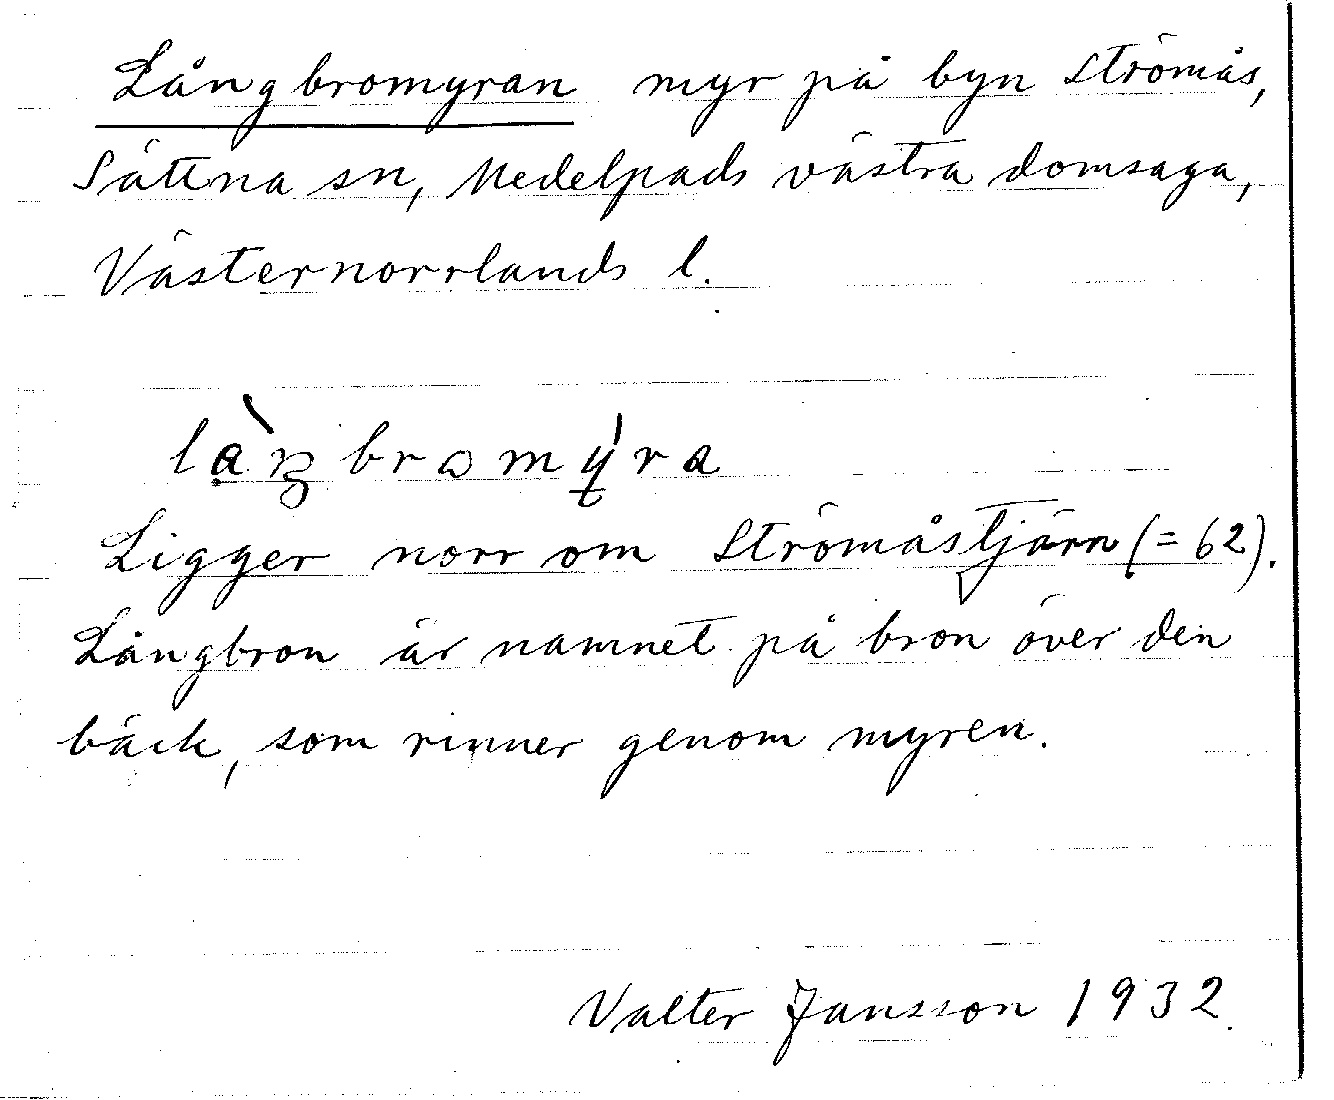 Långbromyran myr på byn Strömås,
Sättna sn, Medelpads västra domsaga,
Västernorrlands l.
Ligger norr om Strömåstjärn (= 62).
Långbron är namnet på bron över den
bäck, som rinner genom myren.
Valter Jansson 1932.